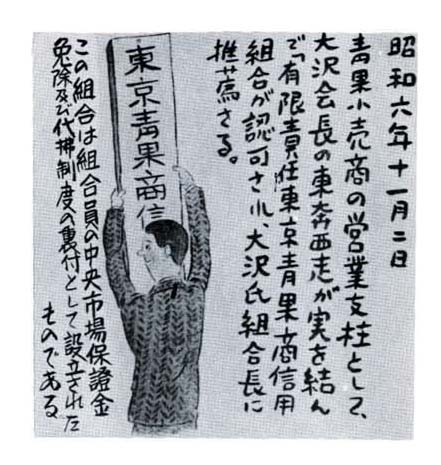 昭和六年十一月二日
青果小売商の営業支柱として、
大沢会長の東奔西走が実を結ん
で「有限責任東京青果商信用
組合が認可され、大沢氏組合長に
推薦さる。
東京青果商信
この組合は組合員の中央市場保證金
免除及び代拂制度の裏付として設立された
ものである